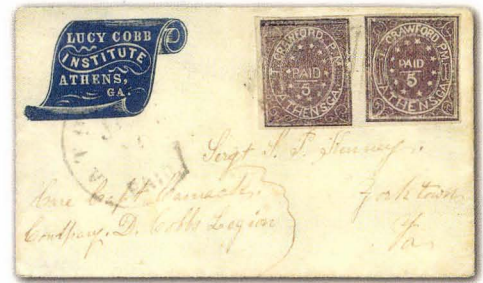 LUCY COBB
INSTITUTE
ATHENS,
GA.
T. CRAWFORD. P.M.
PAID
5
ATHENS.GA.
T. CRAWFORD. P.M.
PAID
5
ATHENS.GA.
Sergt
Care Capt
York town
Company. D. Cobbs Legion
Va